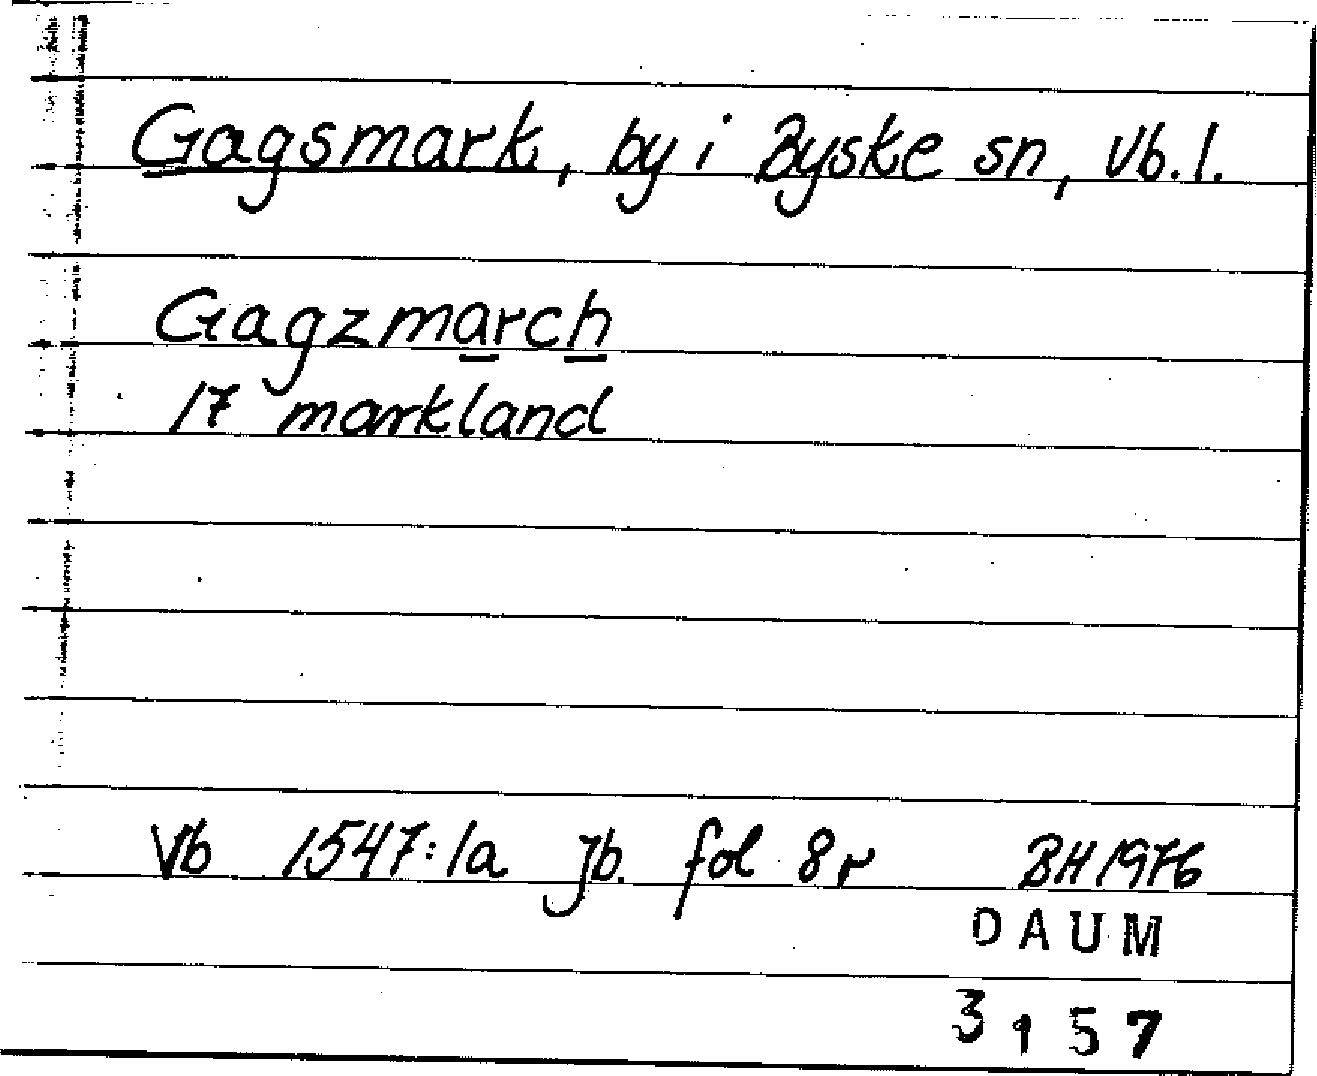 Gagsmark, by i Byske sn, Vb. l.
Gagzmarch
17 markland
Vb 1547:1a Jb. fol 8r BH 1976
DAUM
3157